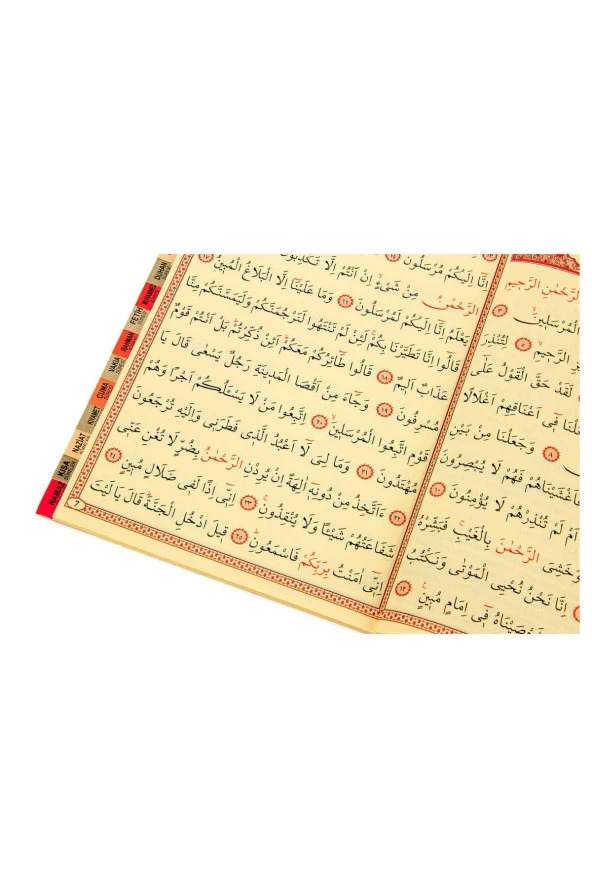 الرَّحْمٰنِ الرَّحٖيمِ
الْمُرْسَلٖينَۙ ٣
الرَّحٖيمِۙ ٥ لِتُنْذِرَ
لَقَدْ حَقَّ الْقَوْلُ عَلٰٓى
فٖٓى اَعْنَاقِهِمْ اَغْلَالًا
٨ وَجَعَلْنَا مِنْ بَيْنِ
فَاَغْشَيْنَاهُمْ فَهُمْ لَا يُبْصِرُونَ
اَمْ لَمْ تُنْذِرْهُمْ لَا يُؤْمِنُونَ ١٠
وَخَشِىَ الرَّحْمٰنَ بِالْغَيْبِۚ فَبَشِّرْهُ
اِنَّا نَحْنُ نُحْيِى الْمَوْتٰى وَنَكْتُبُ
فٖٓى اِمَامٍ مُبٖينٍ۟ ١٢
اِنَّٓا اِلَيْكُمْ مُرْسَلُونَ ١٤
الرَّحْمٰنُ مِنْ شَىْءٍۙ اِنْ اَنْتُمْ اِلَّا تَكْذِبُونَ
يَعْلَمُ اِنَّٓا اِلَيْكُمْ لَمُرْسَلُونَ ١٦ وَمَا عَلَيْنَٓا اِلَّا الْبَلَاغُ الْمُبٖينُ ١٧
قَالُٓوا اِنَّا تَطَيَّرْنَا بِكُمْۚ لَئِنْ لَمْ تَنْتَهُوا لَنَرْجُمَنَّكُمْ وَلَيَمَسَّنَّكُمْ مِنَّا
عَذَابٌ اَلٖيمٌ ١٨ قَالُوا طَٓائِرُكُمْ مَعَكُمْۜ اَئِنْ ذُكِّرْتُمْۜ بَلْ اَنْتُمْ قَوْمٌ
مُسْرِفُونَ ١٩ وَجَٓاءَ مِنْ اَقْصَا الْمَدٖينَةِ رَجُلٌ يَسْعٰى قَالَ يَا
قَوْمِ اتَّبِعُوا الْمُرْسَلٖينَۙ ٢٠ اِتَّبِعُوا مَنْ لَا يَسْـَٔلُكُمْ اَجْرًا وَهُمْ
مُهْتَدُونَ ٢١ وَمَا لِىَ لَٓا اَعْبُدُ الَّذٖى فَطَرَنٖى وَاِلَيْهِ تُرْجَعُونَ
٢٢ ءَاَتَّخِذُ مِنْ دُونِهٖٓ اٰلِهَةً اِنْ يُرِدْنِ الرَّحْمٰنُ بِضُرٍّ لَا تُغْنِ عَنّٖى
شَفَاعَتُهُمْ شَيْـًٔا وَلَا يُنْقِذُونِۚ ٢٣ اِنّٖٓى اِذًا لَفٖى ضَلَالٍ مُبٖينٍ ٢٤
اِنّٖٓى اٰمَنْتُ بِرَبِّكُمْ فَاسْمَعُونِۜ ٢٥ قٖيلَ ادْخُلِ الْجَنَّةَۜ قَالَ يَا لَيْتَ
DUHAN
MUHAMMED
FETİH
RAHMAN
VAKIA
CUMA
KIYAMET
NAZİAT
KISA
NAMAZ